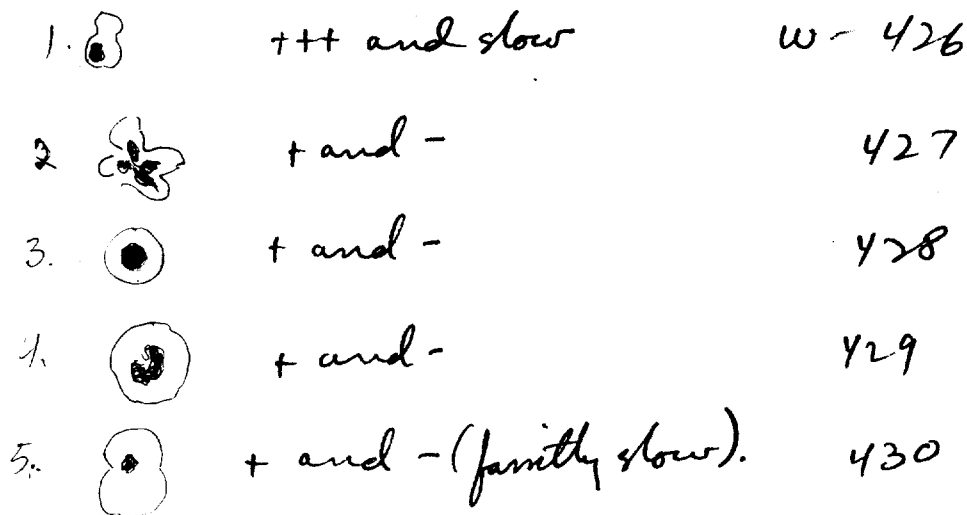 1. +++ and slow W - 426
2 + and - 427
3. + and - 428
4. + and - 429
5. + and - (faintly slow). 430